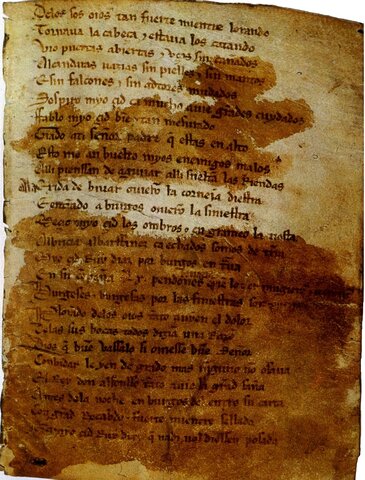 Delos sos oios tan fuerte mientre lorando
Tornaua la cabeça τ estaua los catando
Vio puertas abiertas τ vços sin cañados
Alcandaras uazias sin pielles τ sin mantos
E sin falcones τ sin adtores mudados
Sospiro myo çid ca mucho auie grãdes cuydados
Fablo myo çid biẽ τ tan mesurado
Grado ati señor padre q̃ estas en alto
Esto me an buelto myos enemigos malos
Alli pienssan de aguiiar alli sueltã las Riendas
Ala exida de biuar ouierõ la corneia diestra
E entrãdo a burgos ouierõ la siniestra
Meçio myo çid los ombros τ en grameo la tiesta
Albricia albarffanez ca echados somos de tr̃ra
Myo çid Ruy diaz por burgos en traua
En su conpaña .Lx. pendones
Burgeses τ burgesas por las finiestras son
Plorando delos oios tãto auyen el dolor
Delas sus bocas todos dizian una Razõ
Dios q̃ buẽ vassalo si ouiesse buẽ Señor
Conbidar le yen de grado mas ninguno nõ osaua
El Rey don alfonsso tãto auie la grãd saña
Antes dela noche en burgos del entro su carta
Con grãd Recabdo τ fuerte mientre sellada
Que a myo çid Ruy diaz q̃ nadi nol diessen posada